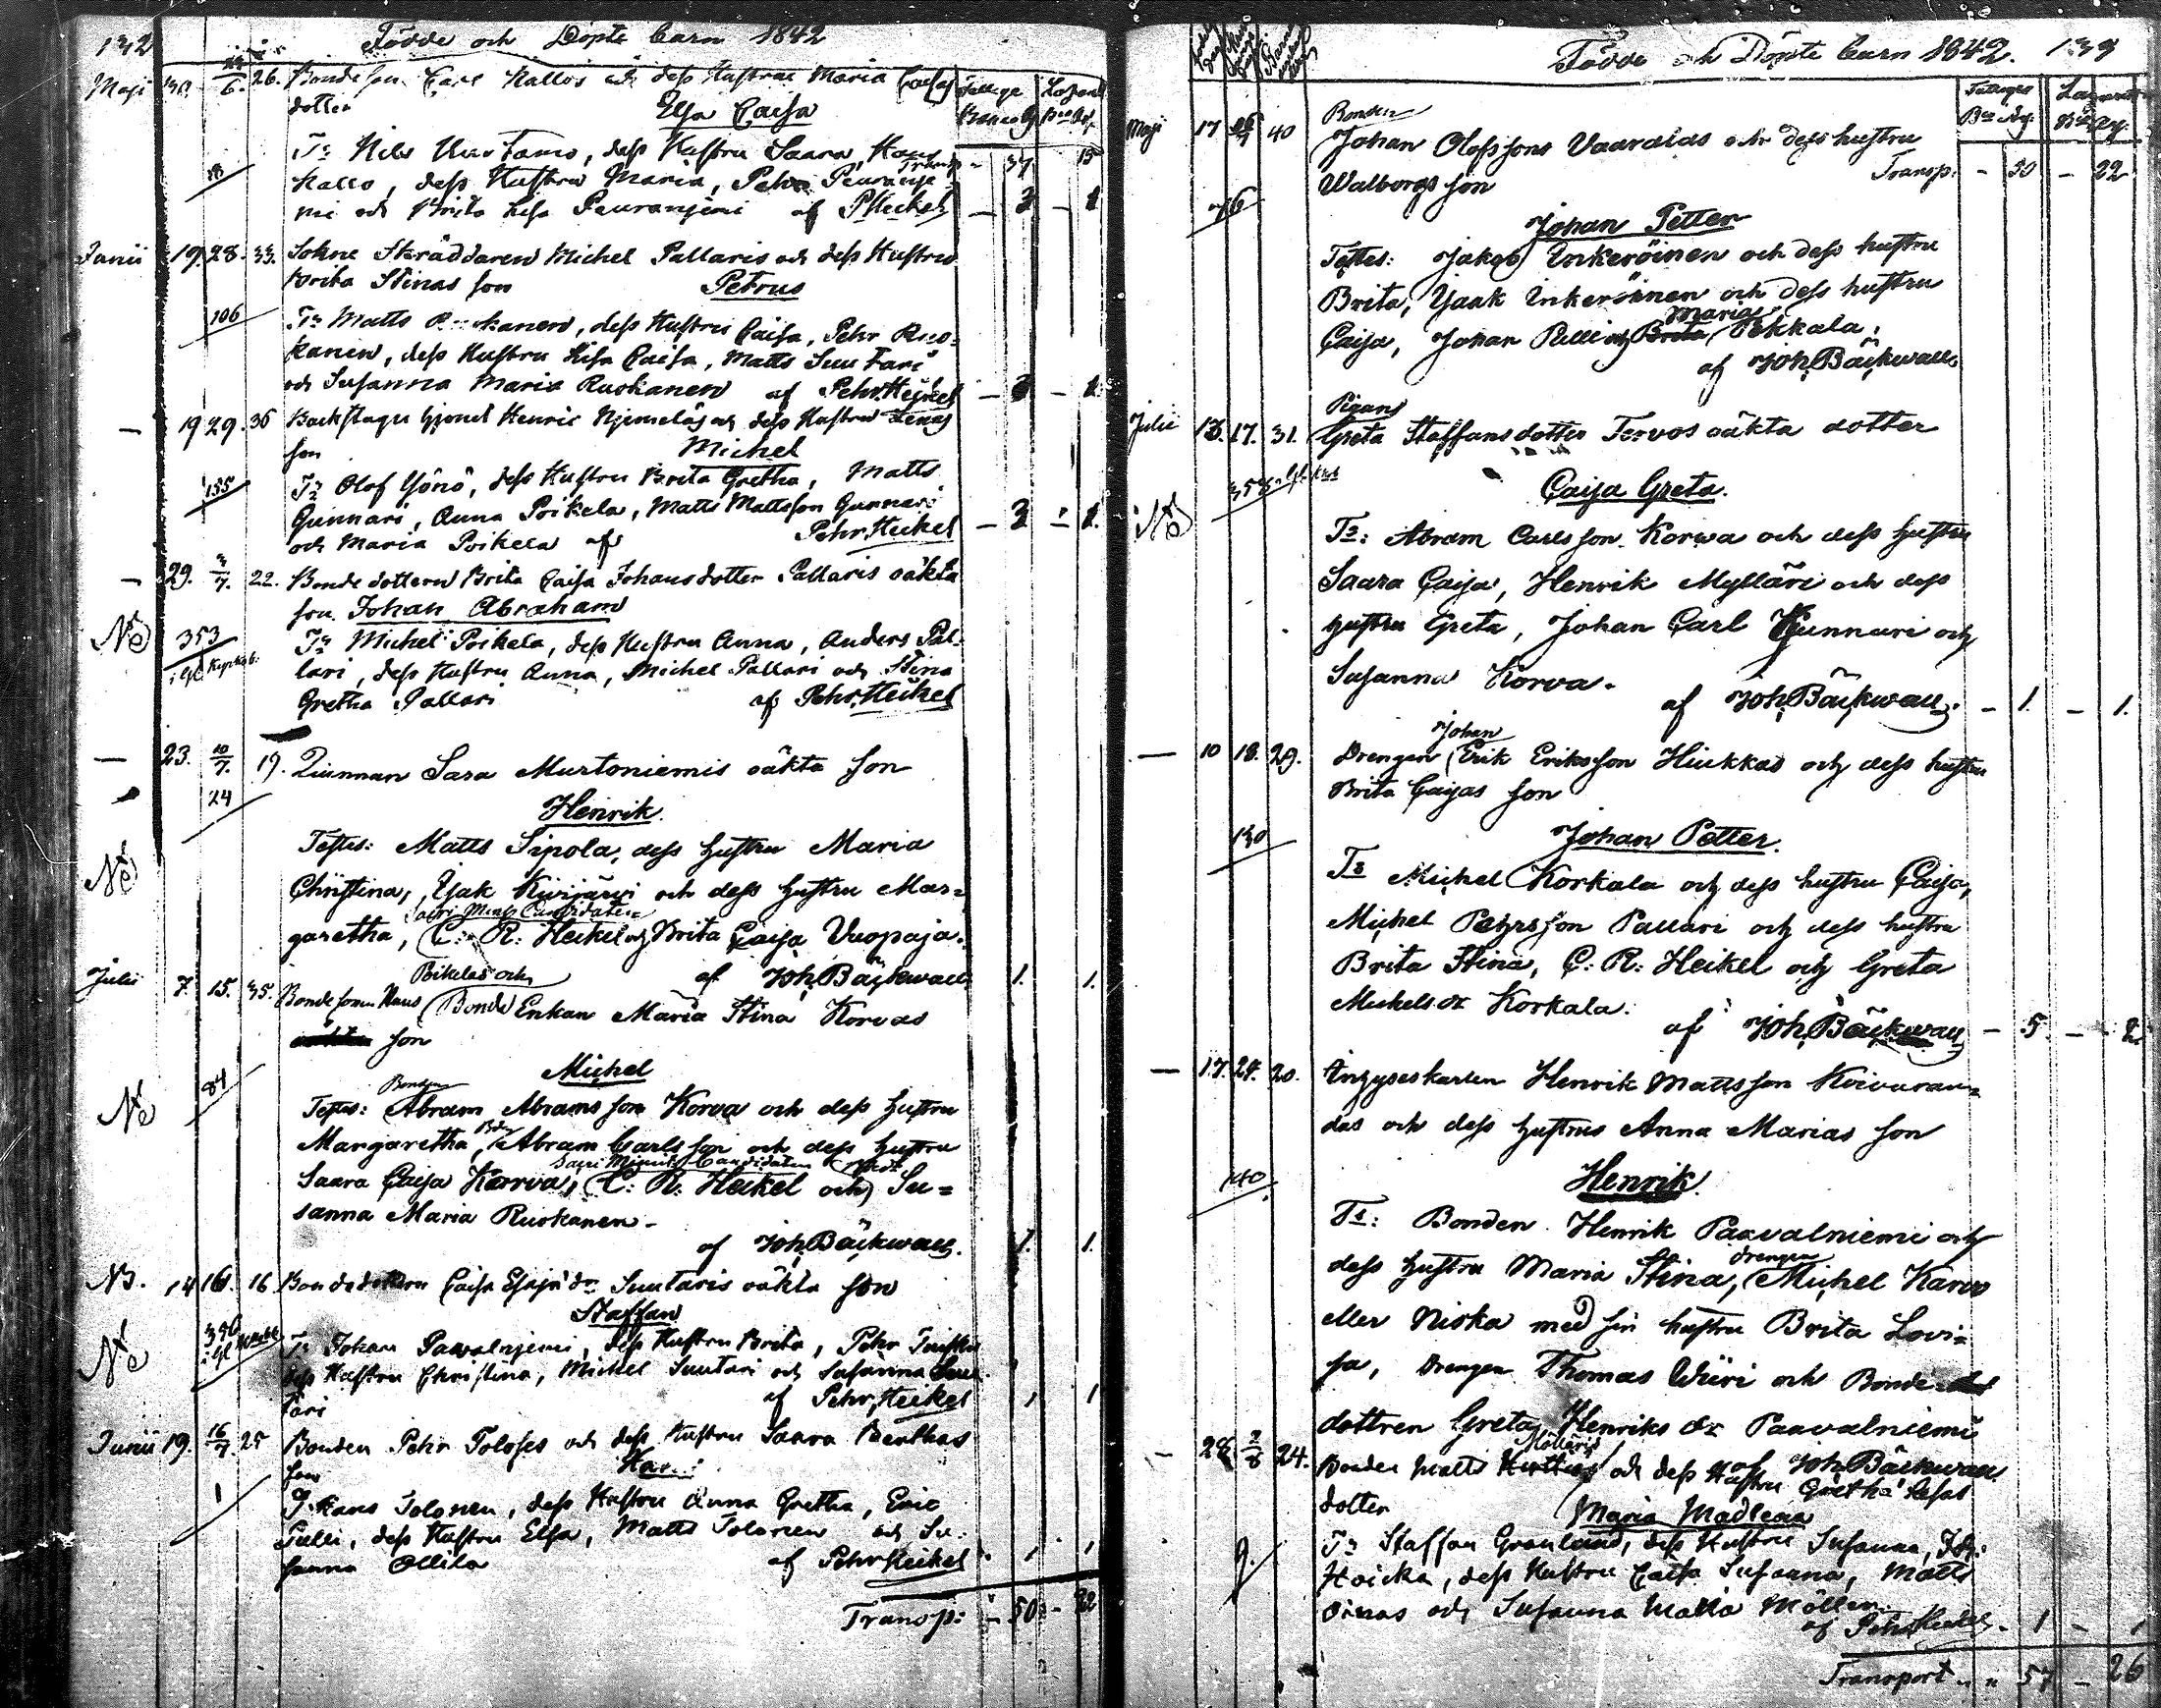 132 Födde och Döpte barn 1842
Maji 30. 6. 26. Bondeson Carl Kallos och dess Hustrus Maria Caisas
dotter Elsa Caisa
Ts Nils Murtomo, dess Hustru Saara, Hans
Kallo, dess Hustru Maria, Pehr Peuranje Transp. - 37 15
mi och Brita Lisa Peuranjemi af P Heikel - 3 - 1
Junii 19. 28. 33. Sokne Skräddaren Michel Pallaris och dess Hustrus
Brita Stinas son Petrus
106 Ts Matts Ruokanen, dess Hustru Caisa, Pehr Ruo-
kanen, dess Hustru Lisa Caisa, Matts Suutari
och Susanna Maria Ruokanen af Pehr Heikel - 3 - 1.
- 19 29. 36 Backstugu hjonet Henric Njemeläs och dess Hustrus Lenas
son Michel
155 Ts Olof Yönö, dess Hustru Brita Gretha, Matts
Gunnari, Anna Poikela, Matts Mattsson Gunnari
och Maria Poikela af Pehr Heikel - 3 - 1.
- 29. 3/7. 22. Bonde dottern Brita Caisa Johansdotter Pallaris oäkta
son Johan Abraham
353 Ts Michel Poikela, dess Hustru Anna, Anders Pal-
lari, dess Hustru Anna, Michel Pallari och Stina
Gretha Pallari af Pehr Heikel
- 23. 10/7. 19. Qvinnan Sara Murtoniemis oäkta son
24
Henrik.
Testes: Matts Sipola, dess hustru Maria
Christina, Isak Kivijärvi och dess hustru Mar-
Sacri Minist. Candidaten
garetha, C: R: Heikel och Brita Caisa Vuopaja.
af Joh. Bäckwall 1. 1.
Poikelas och
Julii 7. 15. 35. Bondesonen Hans Bonde Enkan Maria Stina Korvas
son
84 Michel
Bonden
Testes: Abram Abramsson Korva och dess hustru
Margaretha, Abram Carlsson och dess hustru
Sacri Minist. Candidaten
Saara Caisa Korva, C: R: Heikel och Su-
sanna Maria Ruokanen.
af Joh. Bäckwall. 1. 1.
N3. 14 16. 16 Bondedottern Caisa Esajæ dr Suutaris oäkta son
Staffan
Ts Johan Paavalnjemi, dess Hustru Brita, Pehr
dess Hustru Christina, Michel Suutari och Susanna Suu-
tari af Pehr Heikel 1 1
Junii 19. 16/7. 25 Bonden Pehr Toloses och dess Hustru Saara Berthas
son
1 Ts Hans Tolonen, dess Hustru Anna Gretha, Eric
Pelli, dess Hustru Elsa, Matts Tolonen och Su-
sanna Ollila af Pehr Heikel 1 1
Transp: - 50 - 22
Födde och Döpte barn 1842. 139
Bonden
Maji 17 40 Johan Olofssons Vaaralas och dess hustru
Walborgs son Transp: - 50 - 22
76
Johan Petter
Testes: Jakob Inkeröinen och dess hustru
Brita, Isak Inkeröinen och dess hustru
Maria
Caisa, Johan Pelli och Brita Pekkala.
af Joh. Bäckwall
Pigans
Julii 13. 17. 31. Greta Staffansdotter Tervos oäkta dotter
358
Caisa Greta.
Ts: Abram Carlsson Korwa och dess hustru
Saara Caisa, Henrik Mylläri och dess
hustru Greta, Johan Carl Gunnari och
Susanna Korva.
af Joh. Bäckwall. - 1. - 1.
Johan
- 10 18. 29. Drengen Erik Eriksson Hiukkas och dess hustru
Brita Caisas son
130 Johan Petter.
Ts Michel Korkala och dess hustru Caisa,
Michel Pehrsson Pallari och dess hustru
Brita Stina, C: R: Heikel och Greta
Michels dr Korkala.
af Joh. Bäckwall - 5. - 2.
- 17. 24. 20. Inhyseskarlen Henrik Mattsson Koivuran-
das och dess hustrus Anna Marias son
140 Henrik.
Ts: Bonden Henrik Paavalniemi och
drengen
dess hustru Maria Stina, Michel Karvo
eller Niska med sin hustru Brita Lovi-
sa, Drengen Thomas Wiiri och Bonde
dottren Greta Henriks dr Paavalniemi
af Joh. Bäckwall
- 28 2/8 24. Bonden Matts och dess Hustru Gretha Lisas
dotter Maria Madlena
9. Ts Staffan Granlund, dess Hustru Susanna, Joh.
Hoicka, dess Hustru Caisa Susanna, Matts
Oinas och Susanna Maria
af Pehr Heikel - 1 - 1
Transport - 57 - 26